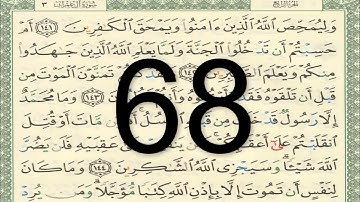 الجزء الرابع سورة آل عمران ٣
وَلِيُمَحِّصَ اللَّهُ الَّذِينَ ءَامَنُوا وَيَمْحَقَ الْكَٰفِرِينَ ١٤١ أَمْ
حَسِبْتُمْ أَن تَدْخُلُوا الْجَنَّةَ وَلَمَّا يَعْلَمِ اللَّهُ الَّذِينَ جَٰهَدُوا
مِنكُمْ وَيَعْلَمَ تَمَنَّوْنَ الْمَوْتَ مِن
قَبْلِ أَن تَلْقَوْهُ فَقَدْ ١٤٣ وَمَا مُحَمَّدٌ
إِلَّا رَسُولٌ قَدْ الرُّسُلُ مَّاتَ أَوْ قُتِلَ
انقَلَبْتُمْ عَلَىٰ عَقِبَيْهِ فَلَن يَضُرَّ
اللَّهَ شَيْـًٔا وَسَيَجْزِي اللَّهُ الشَّٰكِرِينَ ١٤٤ وَمَا كَانَ
لِنَفْسٍ أَن تَمُوتَ إِلَّا بِإِذْنِ اللَّهِ كِتَٰبًا مُّؤَجَّلًا وَمَن يُرِدْ
68